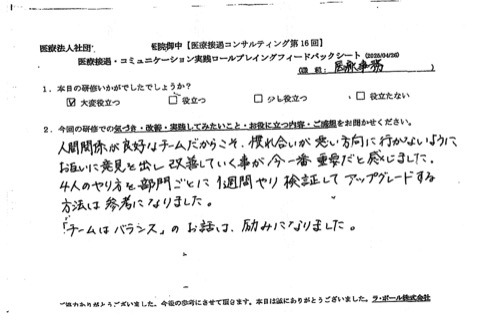 医療法人社団 医院御中【医療接遇コンサルティング第16回】
医療接遇・コミュニケーション実践ロールプレイングフィードバックシート(2025/04/26)
(職種:医療事務)
1.本日の研修いかがでしたでしょうか?
☑大変役立つ □役立つ □少し役立つ □役立たない
2.今回の研修での気づき・改善・実践してみたいこと・お役に立つ内容・ご感想をお聞かせください。
人間関係が良好なチームだからこそ、慣れ合いが悪い方向に行かないように
お互いに意見を出し改善していく事が今一番重要だと感じました。
4人のやり方を部門ごとに1週間やり検証してアップグレードする
方法は参考になりました。
「チームはバランス」のお話は、励みになりました。
ご協力ありがとうございました。今後の参考にさせて頂きます。本日は誠にありがとうございました。ラ・ポール株式会社